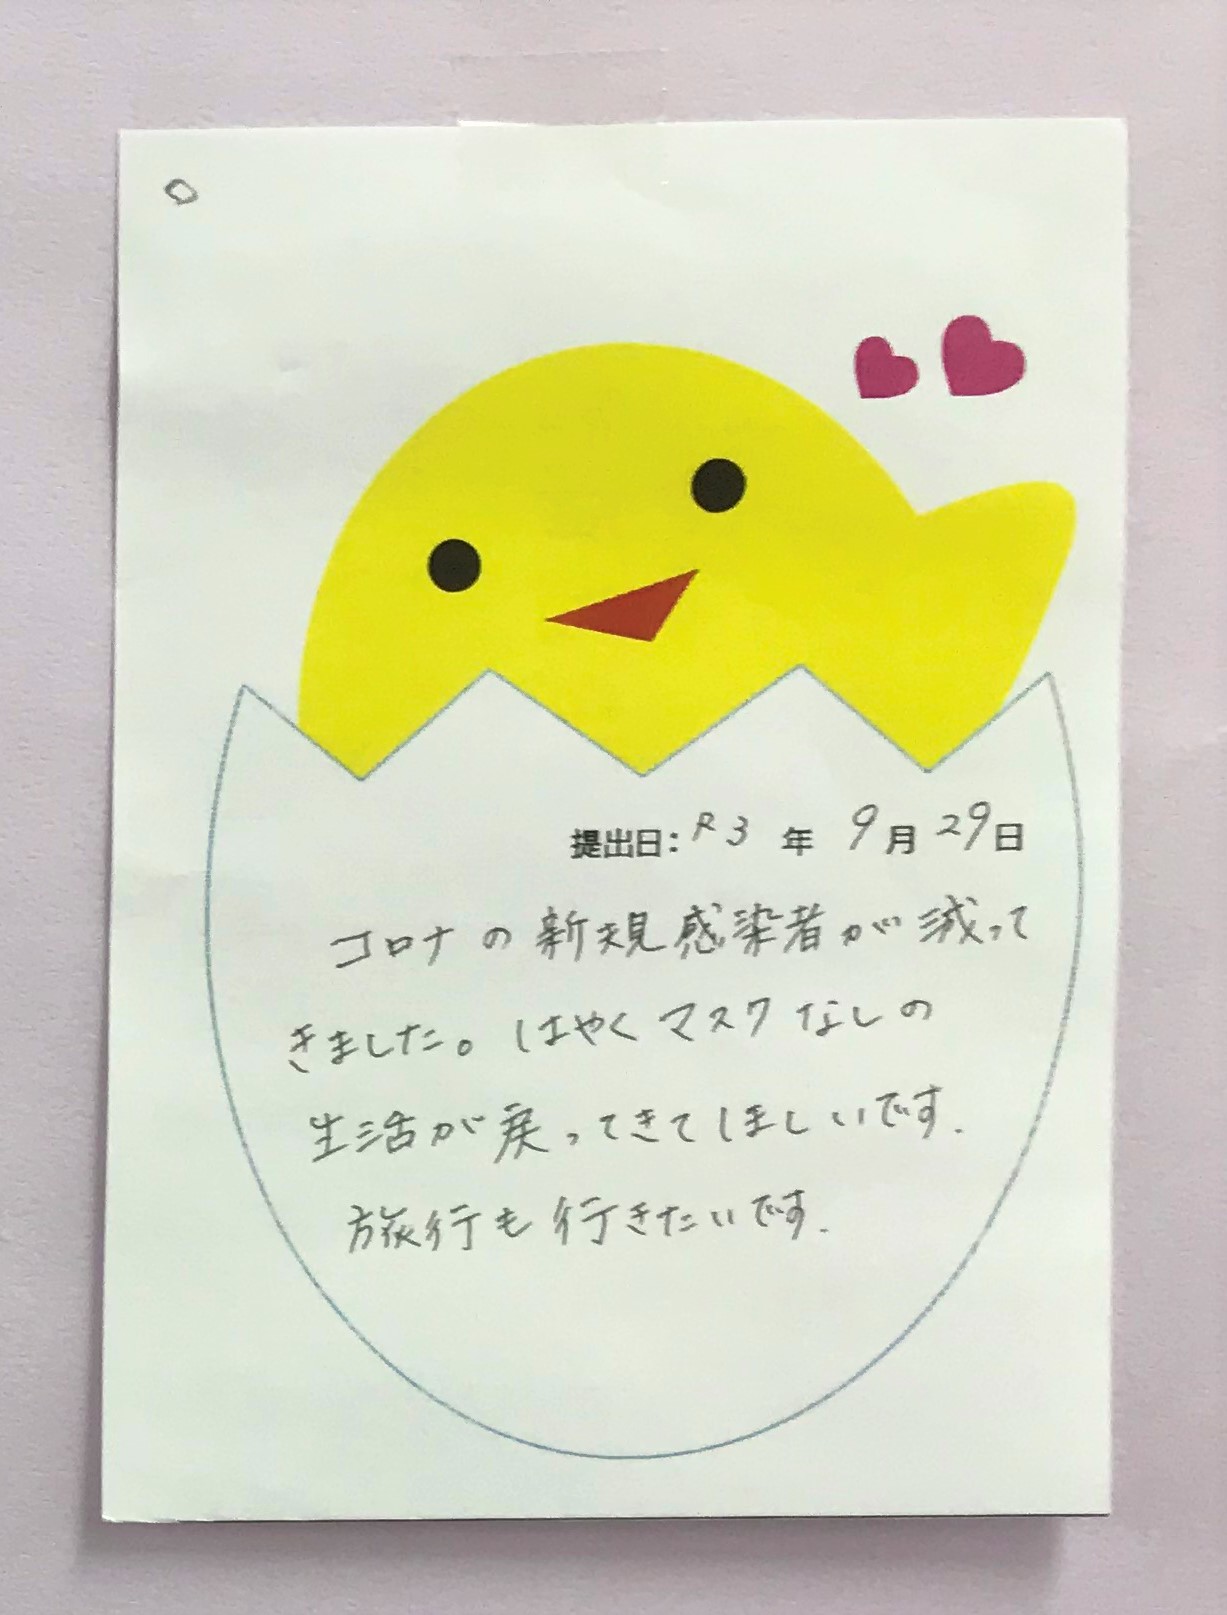 提出日: R3 年 9月 29日
コロナの新規感染者が減って
きました。はやくマスクなしの
生活が戻ってきてほしいです.
旅行も行きたいです.